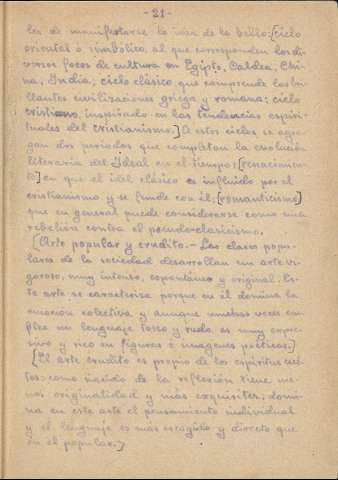 - 21 -
les de manifestarse la idea de lo bello: [ciclo
oriental ó simbólico, al que corresponden los di-
versos focos de cultura en Egipto, Caldea, Chi-
na, India; ciclo clásico, que comprende las bri-
llantes civilizaciones griega y romana; ciclo
cristiano, inspirado en las tendencias espiri-
tuales del Cristianismo.] A estos ciclos se agre-
gan dos periodos que completan la evolución
literaria del Ideal en el tiempo: [renacimien-
to] en que el idel clásico es influido por el
cristianismo y se funde con él; [romanticismo]
que en general puede considerarse como una
rebelión contra el pseudo-clasicismo.
[Arte popular y erudito.- Las clases popu-
lares de la sociedad desarrollan un arte vi-
goroso, muy intenso, espontáneo y original. Es-
te arte se caracteriza porque en él domina la
emoción colectiva y aunque muchas veces em-
plea un lenguaje tosco y rudo, es muy expre-
sivo y rico en figuras e imagenes poéticas.]
[El arte erudito es propio de los espíritus cul-
tos; como nacido de la reflexión tiene me-
nos originalidad y más exquisitez; domi-
na en este arte el pensamiento individual
y el lenguaje es más escogido y discreto que
en el popular.]